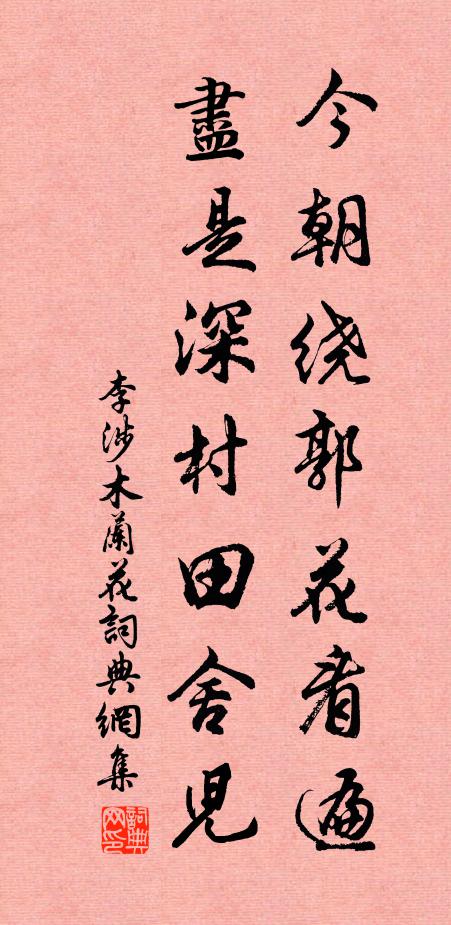 今朝绕郭花看遍
盡是深村田舍児
李涉木蘭花詞典網集
詞典网印